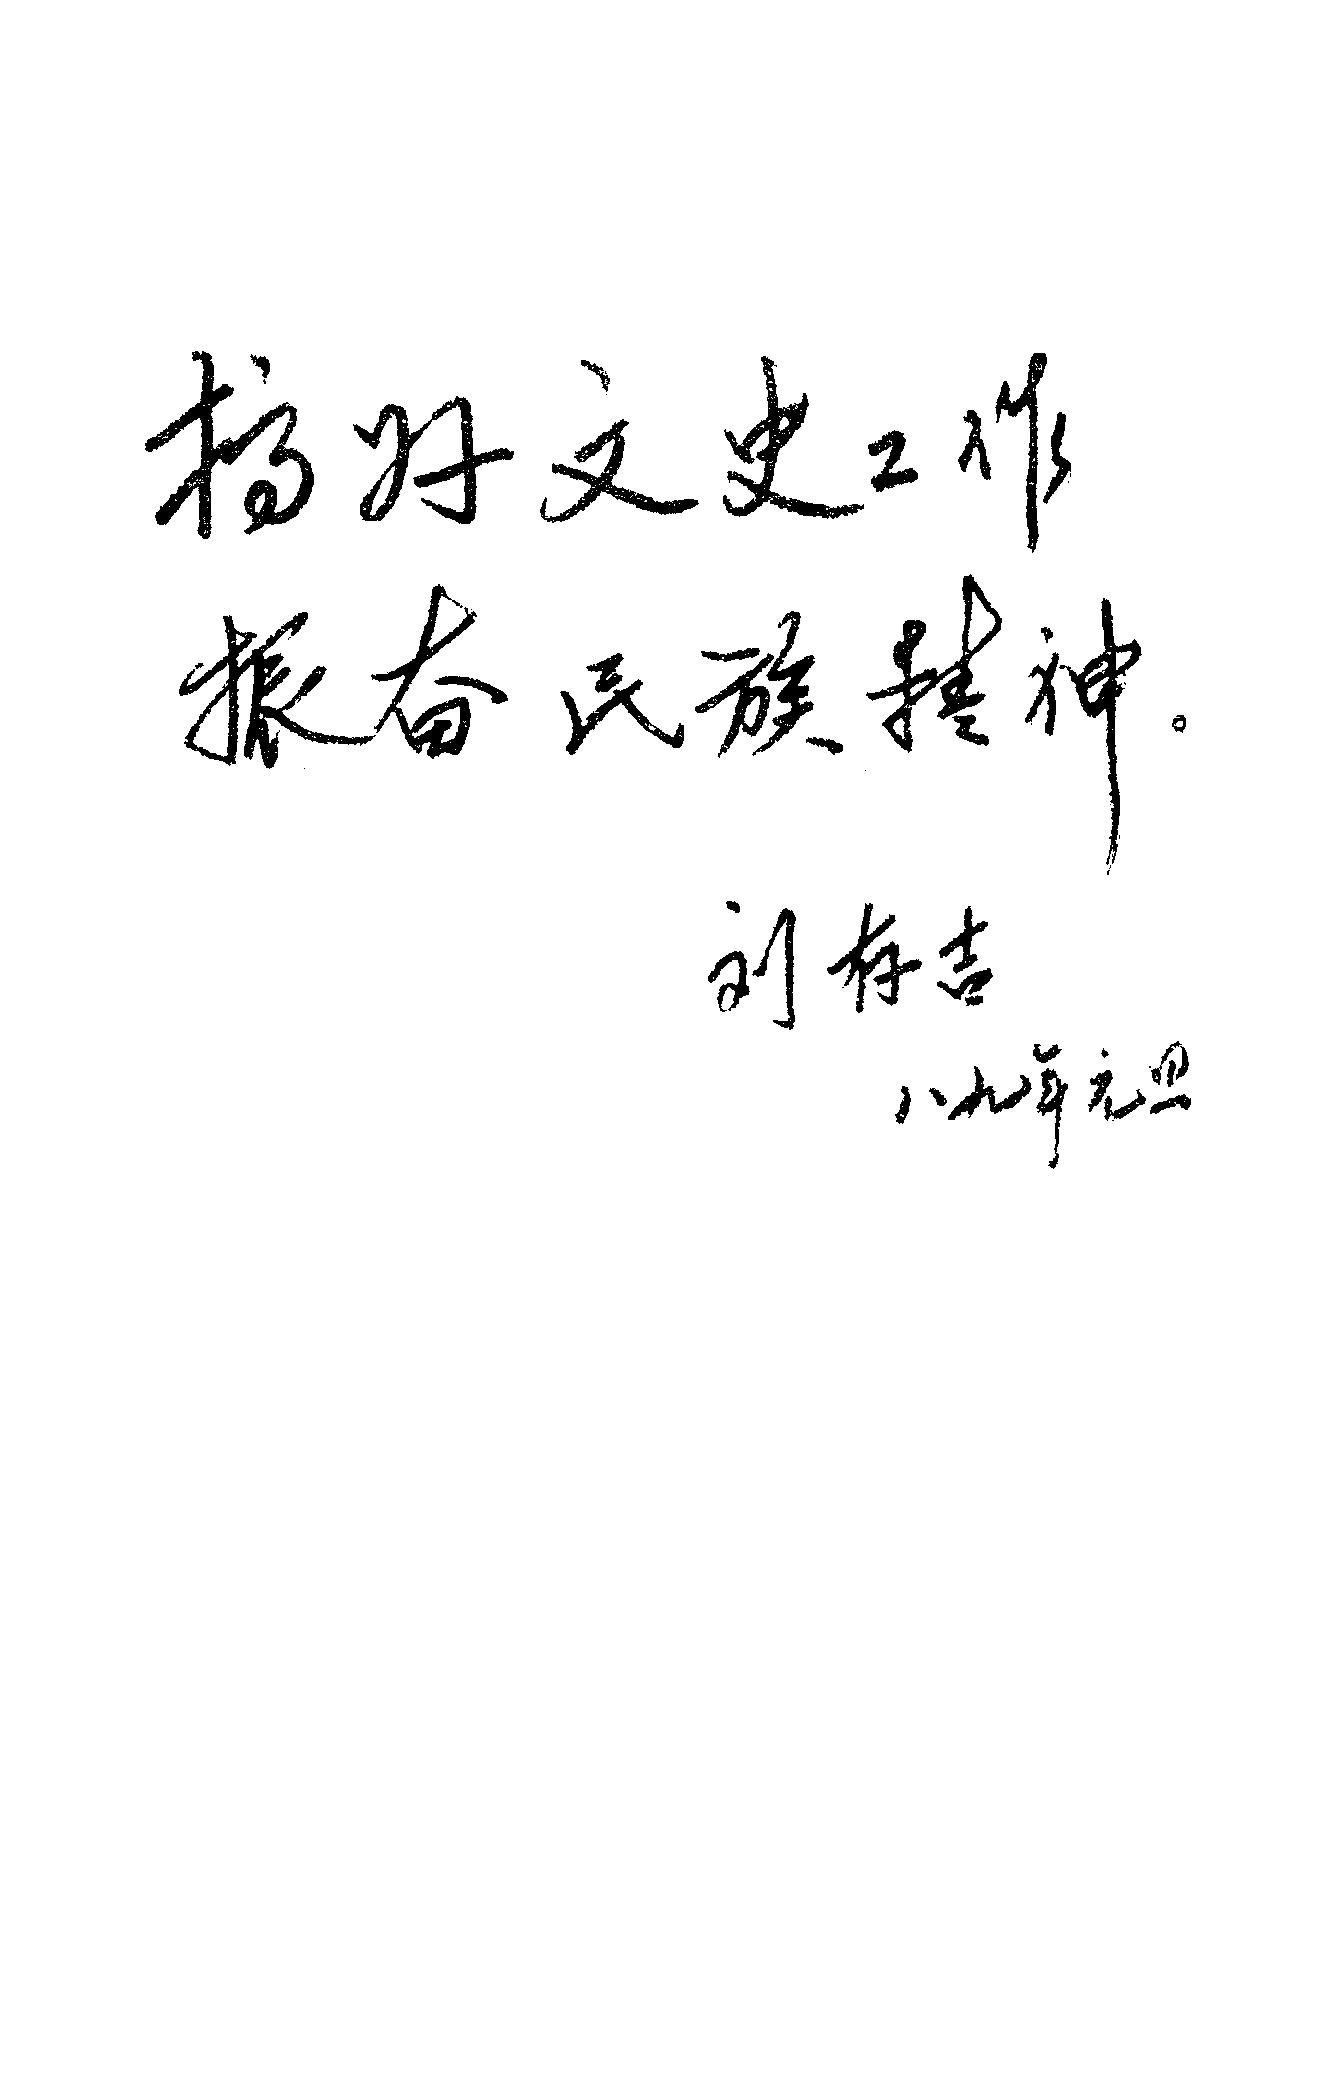 搞好文史工作
振奋民族精神。
刘存吉
八九年元旦